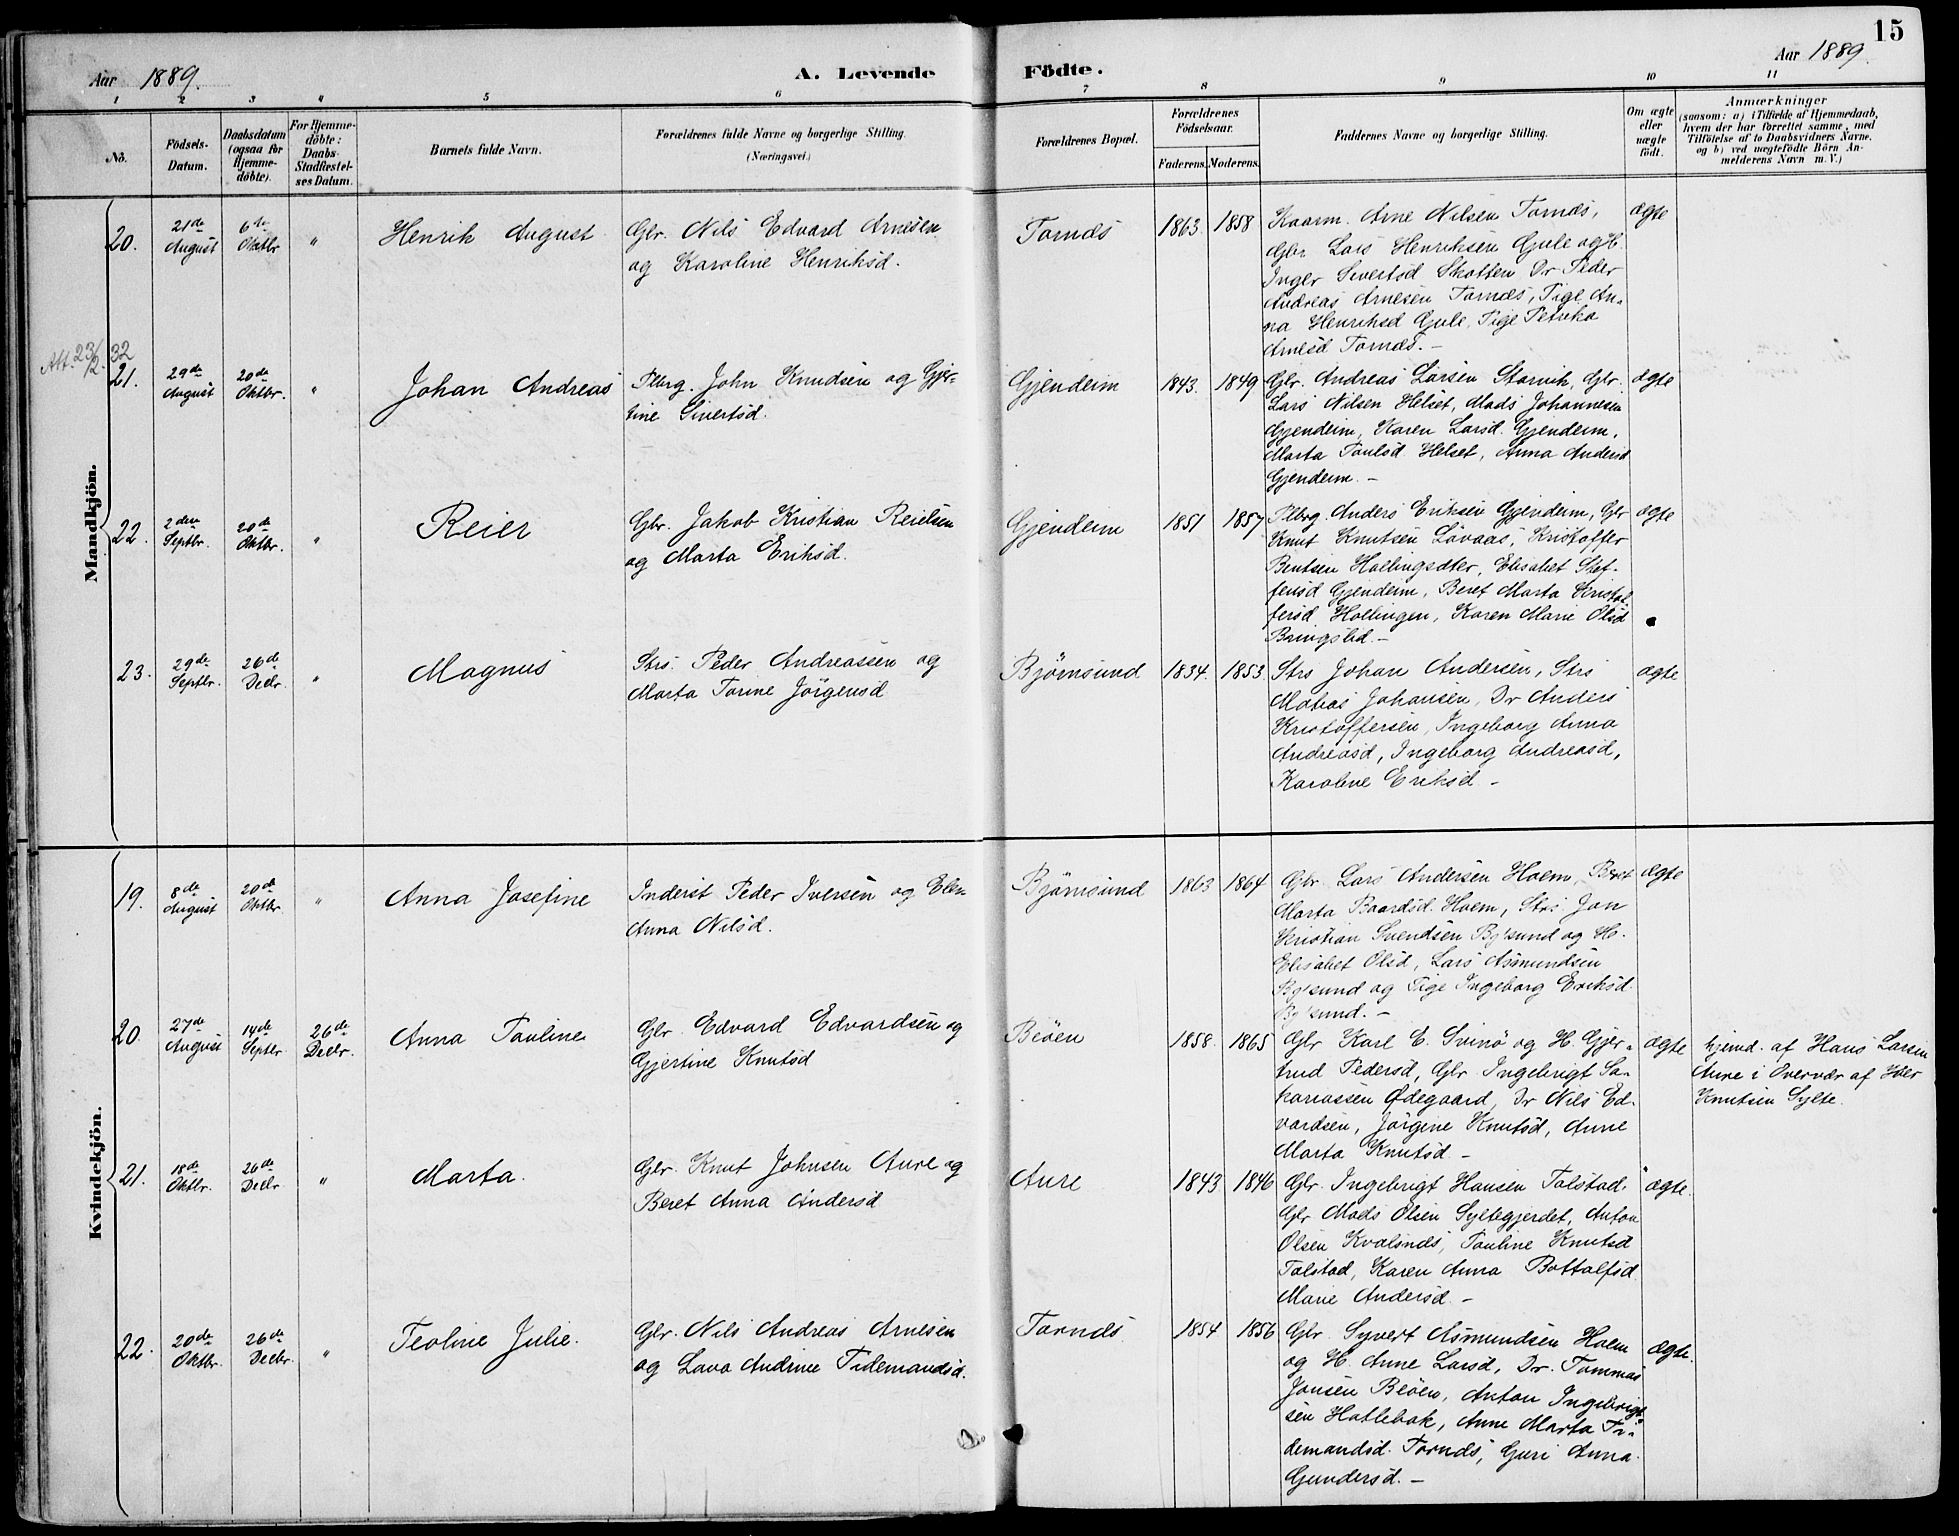 15
Aar 1889.
A. Levende
Födte.
Aar 1889.
1 2 3 " 5 6 7 8 9 10 11
No.
Födsels-
Datum.
Daabsdatum
(ogsaa for
Hjemme-
döbte).
For Hjemme-
döbte:
Daabs-
Stadfæstel-
ses Datum.
Barnets fulde Navn.
Forældrenes fulde Navne og borgerlige Stilling.
(Næringsvei.)
Forældrenes Bopæl.
Forældrenes
Födselsaar.
Faderens. Moderens.
Faddernes Navne og borgerlige Stilling.
Om ægte
eller
uægte
födt.
Anmærkninger
(saasom: a) i Tilfælde af Hjemmedaab,
hvem der har forrettet samme, med
Tilföielse af to Daabsvidners Navne.
og b) ved uægtefödte Börn An-
melderens Navn m. V.)
Mandkjön.
20.
21de
August
6te
Oktbr.
"
Henrik August
Gbr. Nils Edvard Arnesen
og Karoline Henriksd.
Tornæs
1863. 1858
Kaarm. Arne Nilsen Tornæs,
Gbr. Lars Henriksen Gule og H.
Inger Sivertsd Skotten Dr Peder
Andreas Arnesen Tornæs, Pige An-
na Henriksd Gule, Pige Petrika
Arnesd Tornæs. -
ægte
Att. 23/2. 32
21.
29de
August
20de
Oktbr.
"
Johan Andreas
Plbrg. John Knudsen og Gjer-
tine Sivertsd.
Gjendeim
1843. 1849
Gbr. Andreas Larsen Storvik, Gbr.
Lars Nilsen Helset, Mads Johannesen
Gjendeim, Karen Larsd. Gjendeim,
Marta Paulsd Helset, Anna Andersd
Gjendeim. -
ægte
22.
2den
Septbr.
20de
Oktbr.
"
Reier
Gbr. Jakob Kristian Reielsen
og Marta Eriksd.
Gjendeim
1851 1857
Plbrg. Anders Eriksen Gjendeim, Gbr
Knut Knutsen Lövaas, Kristoffer
Bentsen Hollingsæter, Elisabet Stef-
fensd Gjendeim, Beret Marta Kristof-
fersd. Hollingen, Karen Marie Olsd
Bringslid. -
ægte
23.
29de
Septbr.
26de
Decbr.
"
Magnus
Strs. Peder Andreassen og
Marta Torine Jörgensd
Bjørnsund
1834. 1853.
Strs Johan Andersen, Strs
Matias Johansen, Dr Anders
Kristoffersen, Ingeborg Anna
Andreasd, Ingeborg Andreasd,
Karoline Eriksd -
ægte
Kvindekjön.
19.
8de
August
20de
Oktbr.
"
Anna Josefine
Inderst Peder Iversen og Elen
Anna Nilsd.
Bjørnsund
1863 1864
Gbr. Lars Andersen Hoem, Beret
Marta Baardsd. Hoem, Strs. Jon
Kristian Svendsen Bj'sund og H.
Elisabet Olsd, Lars Asmundsen
Bj'sund og Pige Ingeborg Eriksd
Bj'sund. -
ægte
20.
27de
August
14de
Septbr
26de
Decbr.
Anna Pauline
Gbr. Edvard Edvardsen og
Gjertine Knutsd
Beöen
1858. 1865
Gbr Karl E. Svinö og H. Gjer-
trud Pedersd, Gbr. Ingebrigt Sa-
kariassen Ødegaard, Dr Nils Ed-
vardsen, Jörgine Knutsd, Anne
Marta Knutsd -
ægte
hjemd. af Hans Larsen
Aure i Overvær af Iver
Knutsen Sylte.
21.
18de
Oktbr.
26de
Decbr
"
Marta.
Gbr. Knut Johnsen Aure og
Beret Anna Andersd
Aure
1843 1846
Gbr. Ingebrigt Hansen Tolstad.
Gbr Mads Olsen Syltegjerdet, Anton
Olsen Kvalsnæs, Pauline Knutsd
Tolstad, Karen Anna Bottolfsd
Marie Andersd. -
ægte.
22.
20de
Oktbr.
26de
Decbr.
"
Teoline Julie.
Gbr. Nils Andreas Arnesen
og Lava Andrine Tidemandsd.
Tornæs
1854 1856
Gbr. Syvert Asmundsen Hoem
og H. Anne Larsd, Dr. Tommas
Jonsen Beöen, Anton Ingebrigt-
sen Hatlebak, Anne Marta Ti-
demandsd. Tornæs, Guri Anna
Gundersd. -
ægte.